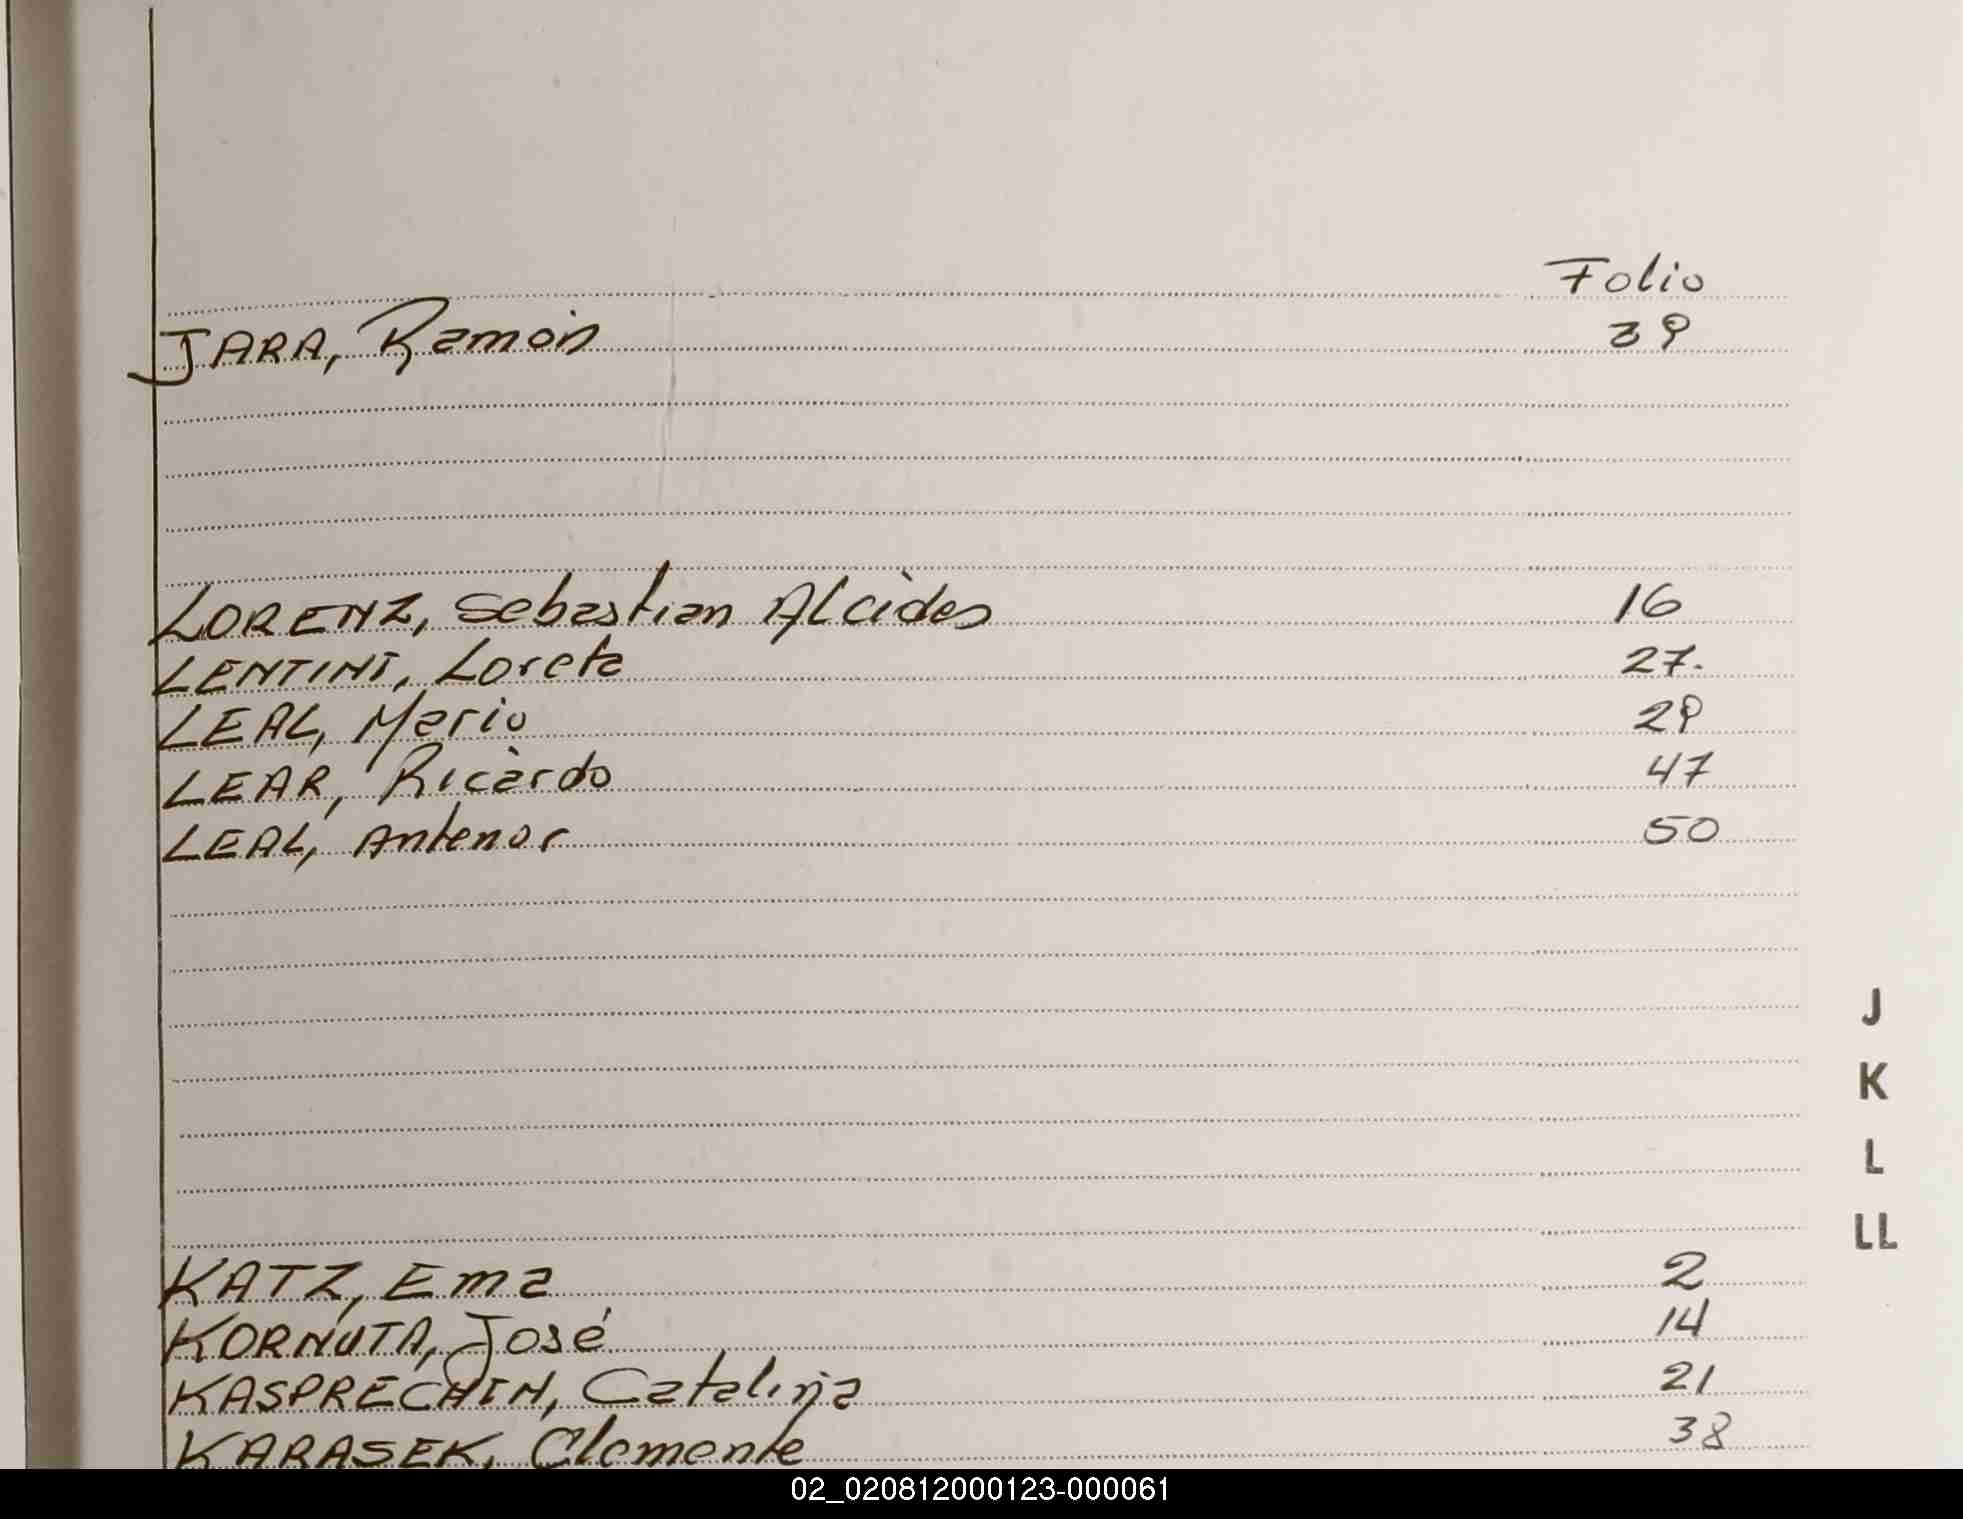 Folio
JARA, Ramón 39
LORENZ, Sebastian Alcides 16
LENTINI, Loreta 27.
LEAL, Mario 29
LEAR, Ricardo 47
LEAL, Antenor 50
J
K
L
LL
KATZ, Ema 2
KORNUTA, José 14
KASPRECHIN, Catalina 21
KARASEK, Clemente 38
02_020812000123-000061